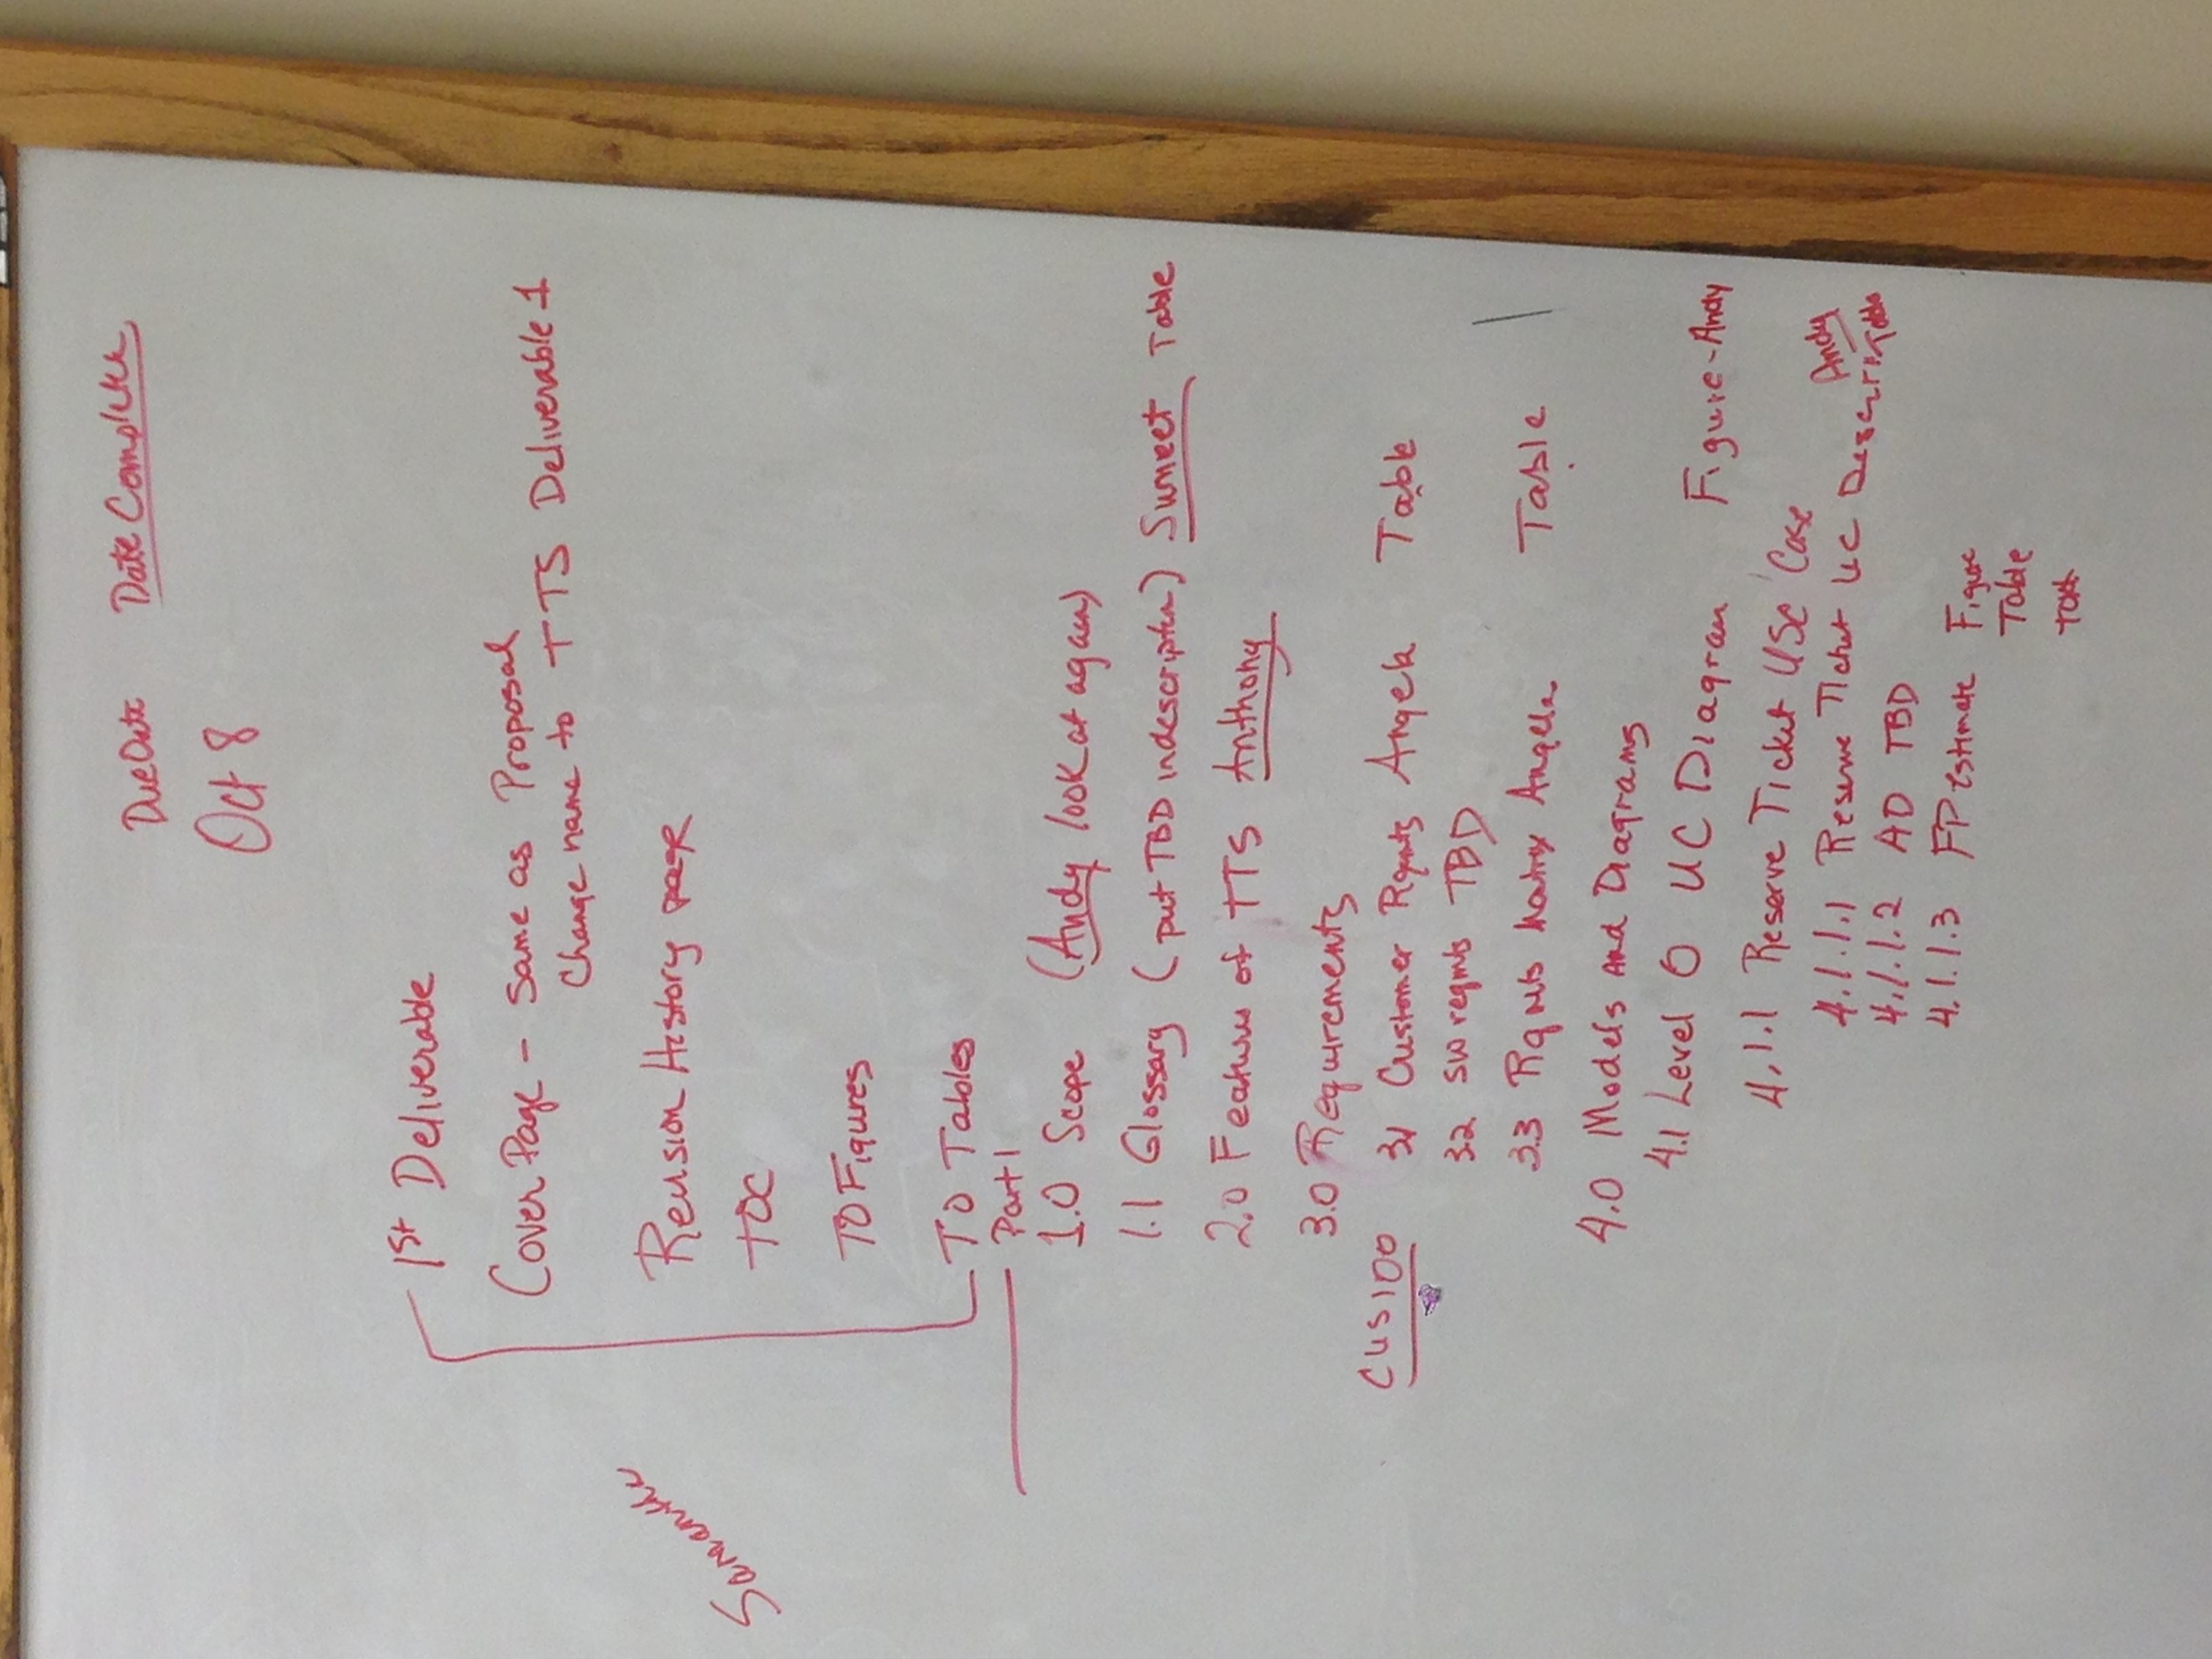 Due Date Date Complete
Oct 8
1st Deliverable
Cover Page - same as Proposal
Change name to TTS Deliverable 1
Samantha
Revision History page
TOC
TO Figures
TO Tables
Part 1
1.0 Scope (Andy look at again)
1.1 Glossary (put TBD in description) Sumeet Table
2.0 Features of TTS Anthony
3.0 Requirements
CUS100 3.1 Customer Rqmts Angela Table
3.2 SW reqmts TBD
3.3 Rqmts Matrix Angela Table
4.0 Models and Diagrams
4.1 Level 0 UC Diagram Figure - Andy
4.1.1 Reserve Ticket Use Case
4.1.1.1 Reserve Ticket UC Descri Andy Table
4.1.1.2 AD TBD
4.1.1.3 FP estimate Figure
Table
text